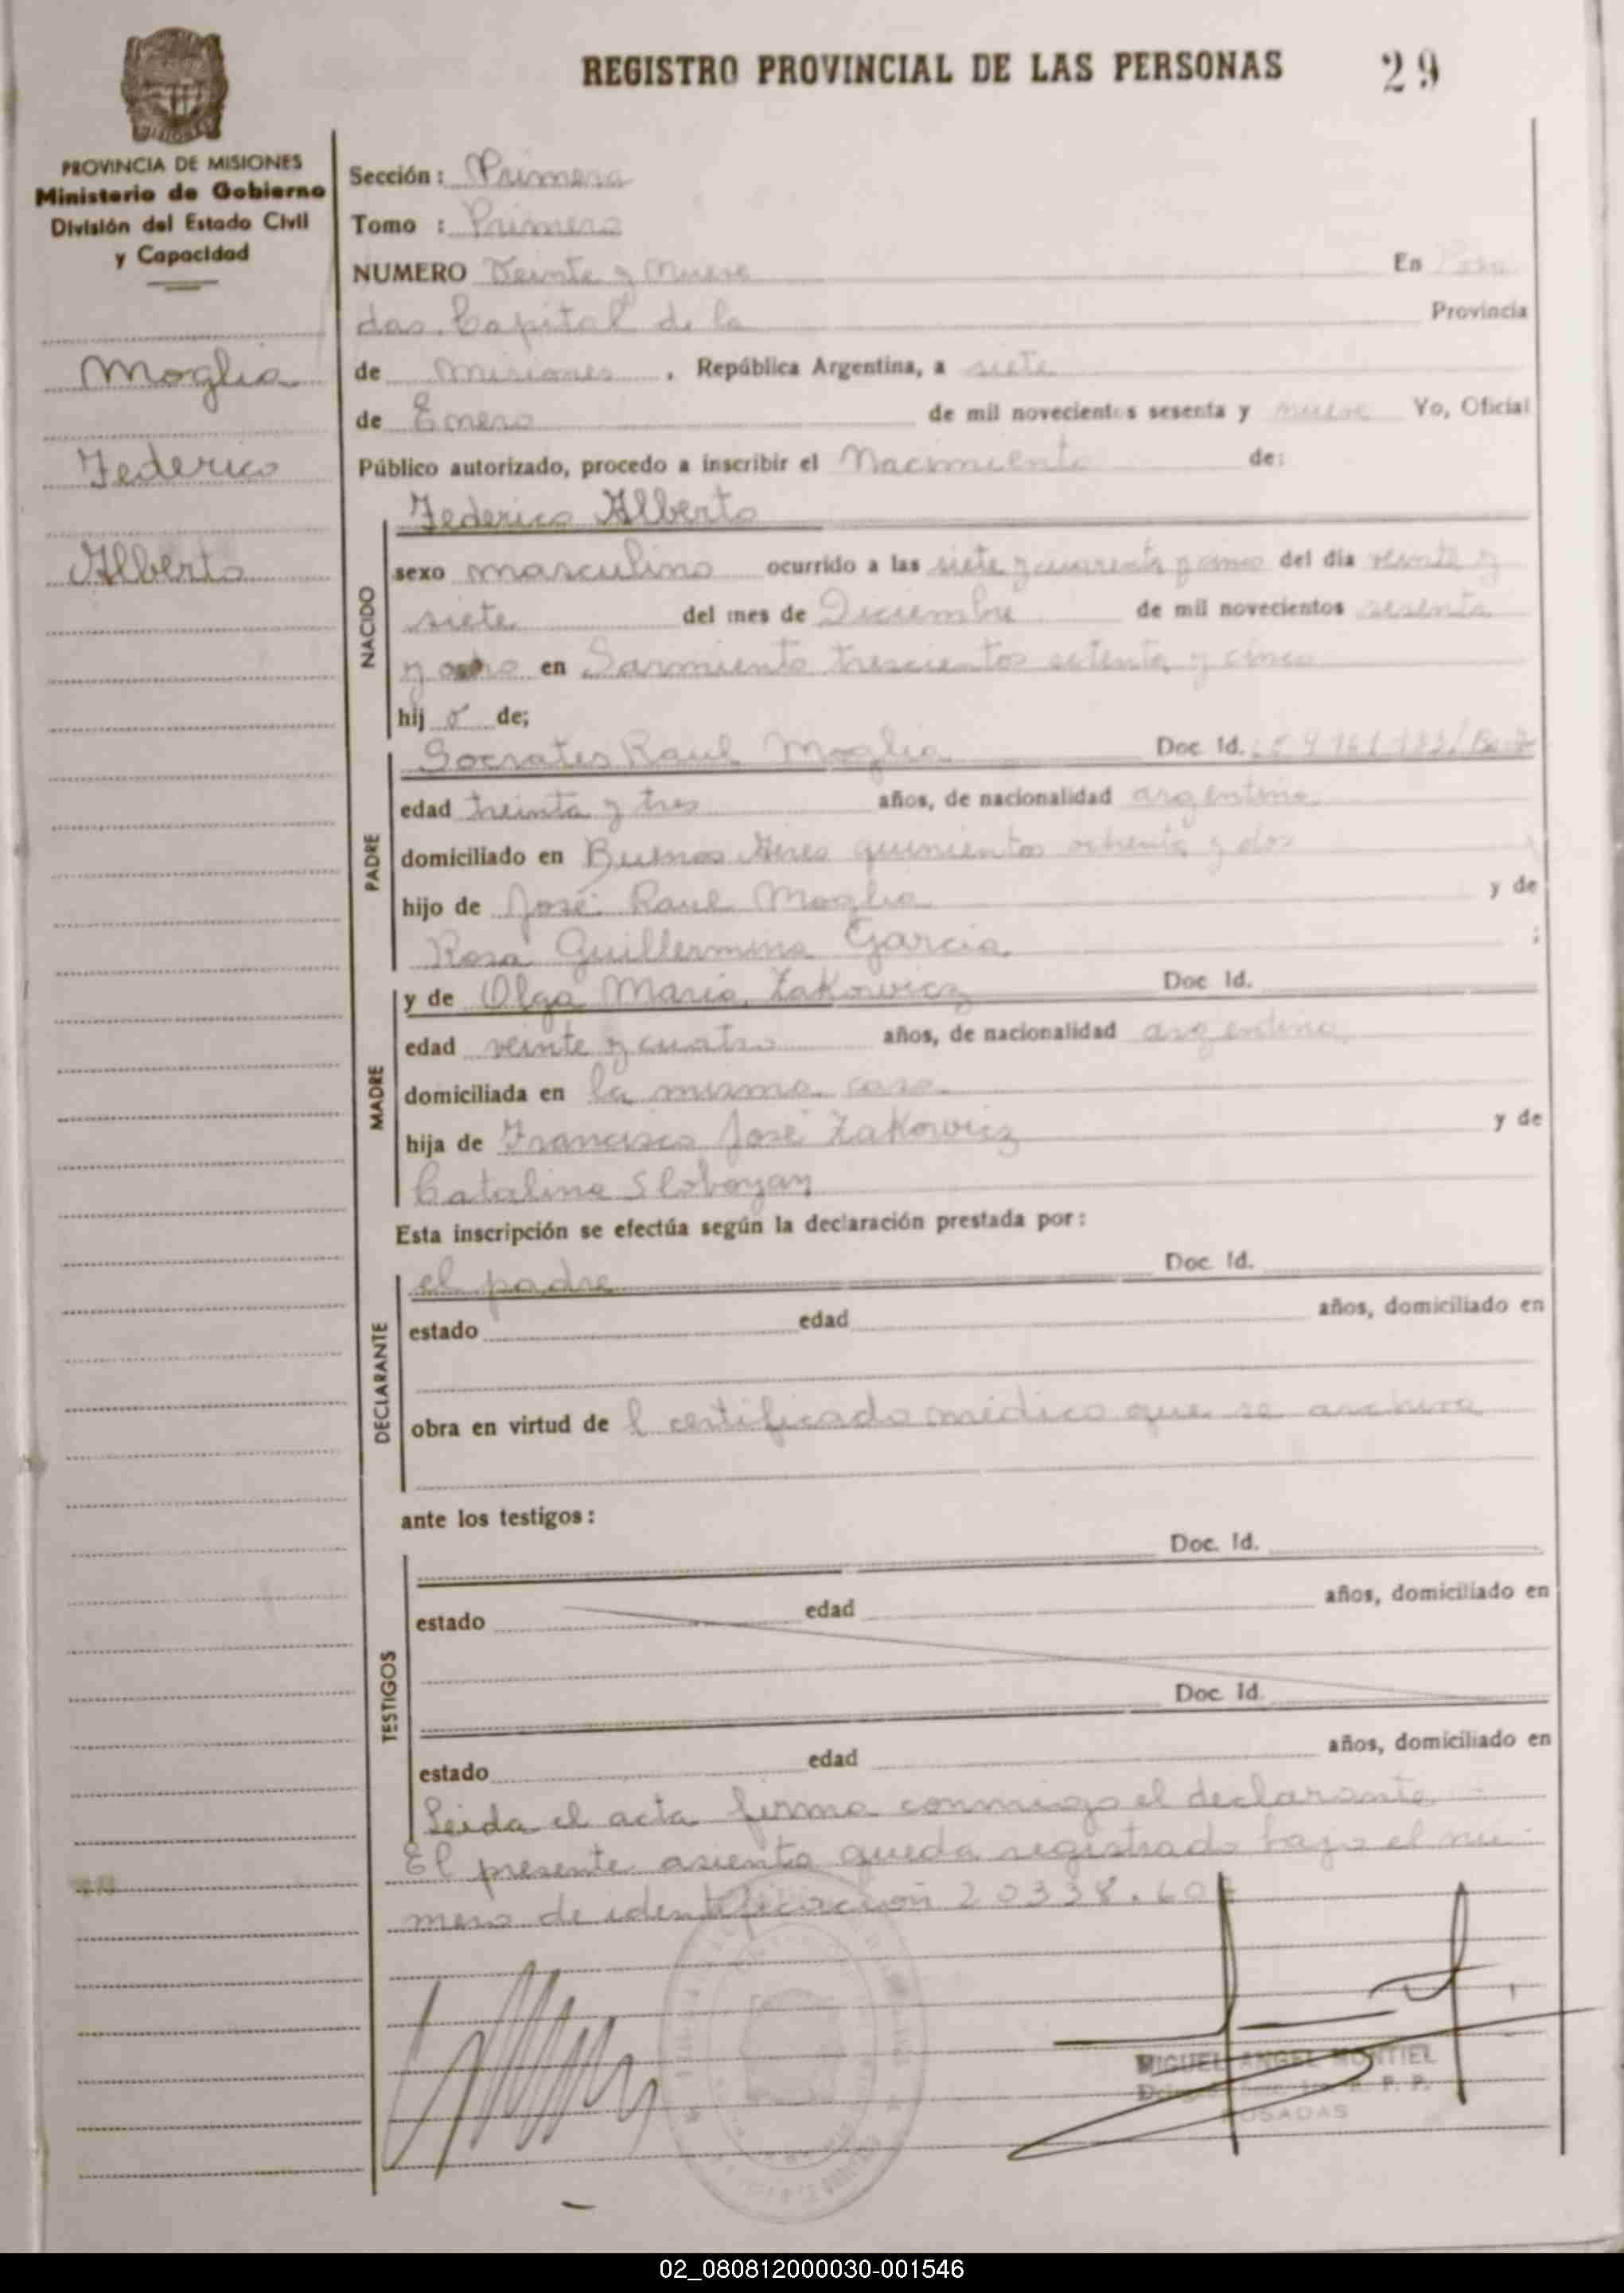 REGISTRO PROVINCIAL DE LAS PERSONAS 29
PROVINCIA DE MISIONES
Ministerio de Gobierno
División del Estado Civil
y Capacidad
Moglia
Federico
Alberto
Sección: Primera
Tomo : Primero
NUMERO Veinte y Nueve En Posa
das. Capital de la Provincia
de Misiones, República Argentina, a siete
de Enero de mil novecientos sesenta y nueve Yo, Oficial
Público autorizado, procedo a inscribir el Nacimiento de:
NACIDO
Federico Alberto
sexo masculino ocurrido a las siete y cuarenta y cinco del día veinte y
siete del mes de Diciembre de mil novecientos sesenta
y ocho en Sarmiento trescientos setenta y cinco
hij o de;
PADRE
Socrates Raul Moglia Doc. Id.
edad treinta y tres años, de nacionalidad argentina
domiciliado en Buenos Aires quinientos ochenta y dos
hijo de José Raul Moglia y de
Rosa Guillermina Garcia ;
MADRE
y de Olga Maria Zakowicz Doc. Id.
edad veinte y cuatro años, de nacionalidad argentina
domiciliada en la misma casa
hija de Francisco José Zakowicz y de
Catalina Slobozan
Esta inscripción se efectúa según la declaración prestada por:
DECLARANTE
el padre Doc. Id.
estado edad años, domiciliado en
obra en virtud de l certificado médico que se archiva
ante los testigos:
TESTIGOS
Doc. Id.
estado edad años, domiciliado en
Doc. Id.
estado edad años, domiciliado en
Leida el acta firma conmigo el declarante
El presente asiento queda registrado bajo el nú
mero de identificación 20338.60
MIGUEL ANGEL MONTIEL
R. P. P.
POSADAS
02_080812000030-001546